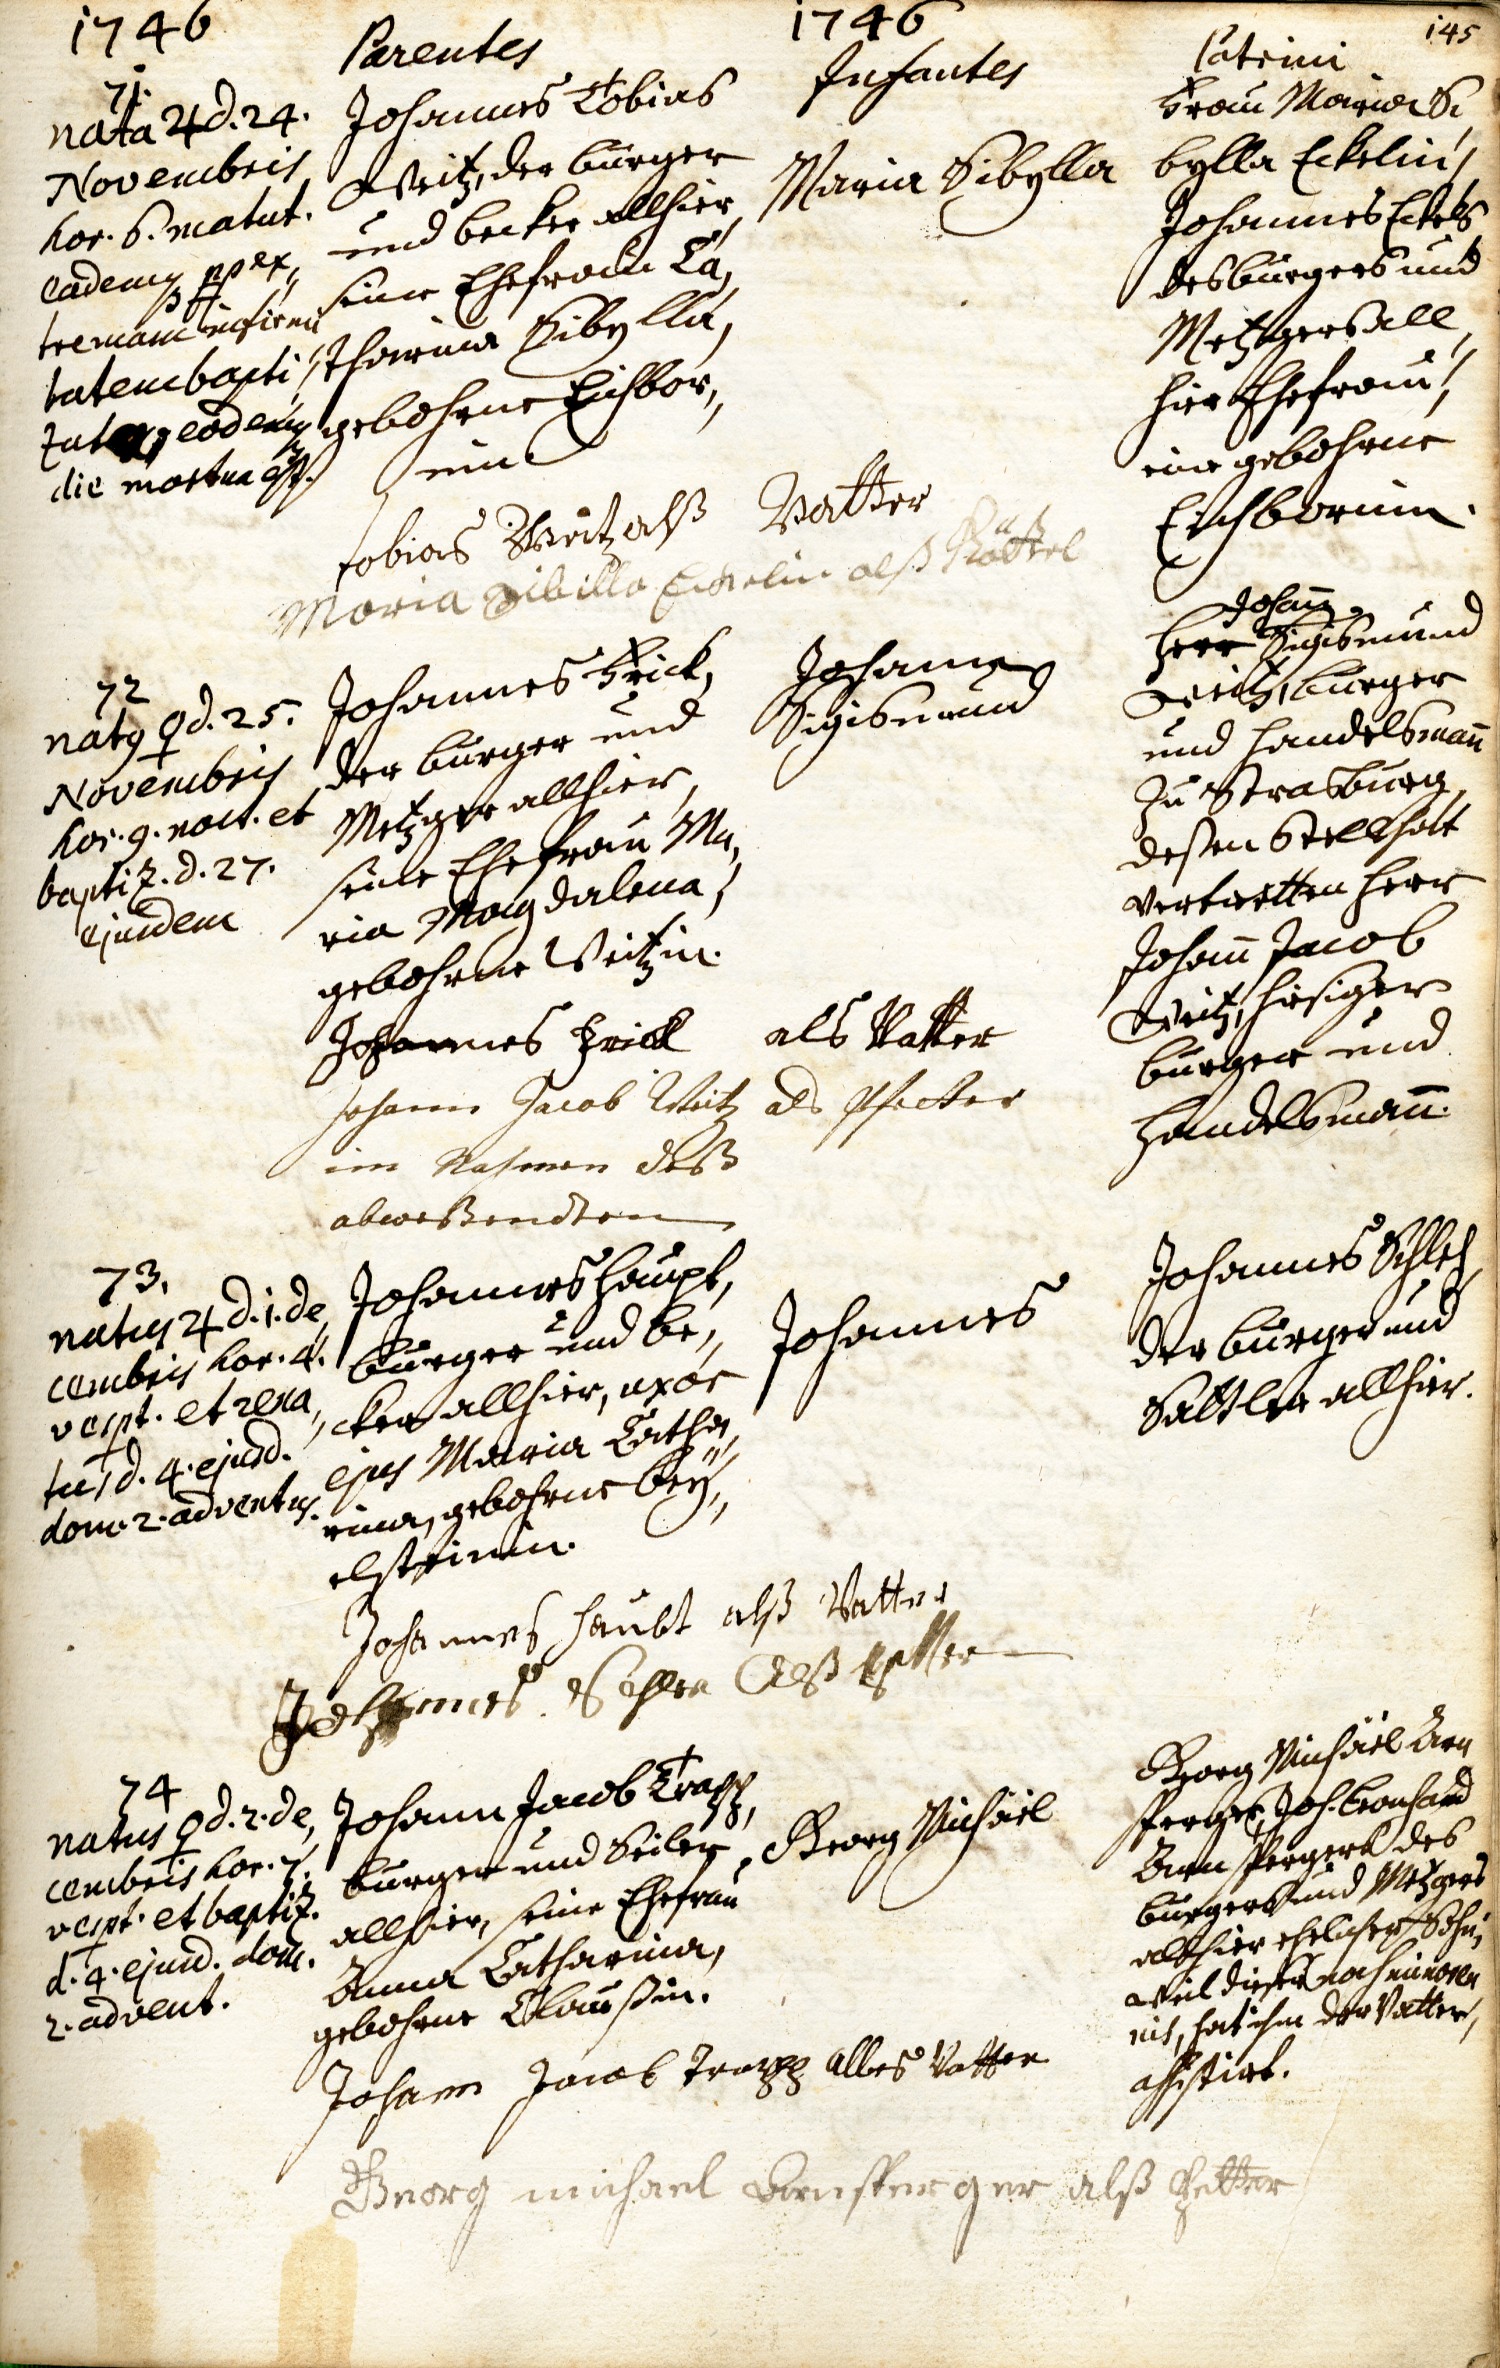 1746
Parentes
1746
Infantes
Patrini
145
71.
nata ♃ d. 24.
Novembris
hor. 6. matut.
eadem ppt ex,
tremam infirmi
tatem bapti,
zata, eodem
die mortua est.
Johannes Tobias
Weitz, der burger
und becker allhier,
seine Ehefrau Ca,
tharina Sibylla,
gebohrne Eichbor,
nin
Maria Sibylla
Frau Maria Si
bylla Eckelin,
Johannes Eckels
des burgers und
Metzgers all,
hier Ehefrau,
eine gebohrne
Eichbornin.
tobias Weitz alß Vatter
Maria Sibilla Eckelin alß Göttel
72
natus ♀ d. 25.
Novembris
hor. 9. noct. et
baptiz. d. 27.
ejusdem
Johannes Frick,
der burger und
Metzger allhier,
seine Ehefrau Ma,
ria Magdalena,
gebohrne Weitzin.
Johannes
Sigismund
Johañ
Herr Sigismund
Weitz, burger
und handelsmañ
zu Strasburg,
deßen Stell hatt
vertretten Herr
Johañ Jacob
Weitz, hiesiger
burger und
Handelsmañ.
Johannes Frick als Vatter
Johann Jacob Weitz als Pfetter
im Nahmen deß
abweßendten
73.
natus ♃ d. 1. de,
cembris hor. 4.
vespt. et rena,
tus d. 4. ejusd.
dom. 2. adventus.
Johannes Haupt,
burger und be,
cker allhier, uxor
ejus Maria Catha,
rina, gebohrne Bey,
elsteinin.
Johannes
Johannes Schleh,
der burger und
Sattler allhier.
Johannes Haubt alß Vatter
Johannes Schlea Alß Pfetter
74
natus ♀ d. 2. de,
cembris hor. 7.
vespt. et baptiz.
d. 4. ejusd. dom.
2. advent.
Johann Jacob Trapp,
burger und Seiler
allhier, seine Ehefrau
Anna Catharina,
gebohrne Claußin.
Georg Michäel
Georg Michäel Arn
sperger, Joh. Leonhard
Arnspergers des
burgers und Metzgers
allhier ehelicher Sohn,
weil dieser noch minoren
nis, hat ihm der Vatter,
assistirt.
Johann Jacob Trapp alles Vatter
Georg michael Arnsperger alß Petter